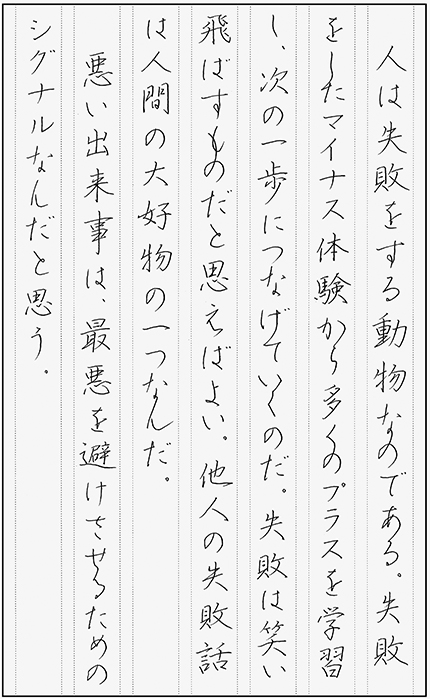 人は失敗をする動物なのである。失敗
をしたマイナス体験から多くのプラスを学習
し、次の一歩につなげていくのだ。失敗は笑い
飛ばすものだと思えばよい。他人の失敗話
は人間の大好物の一つなんだ。
悪い出来事は、最悪を避けさせるための
シグナルなんだと思う。